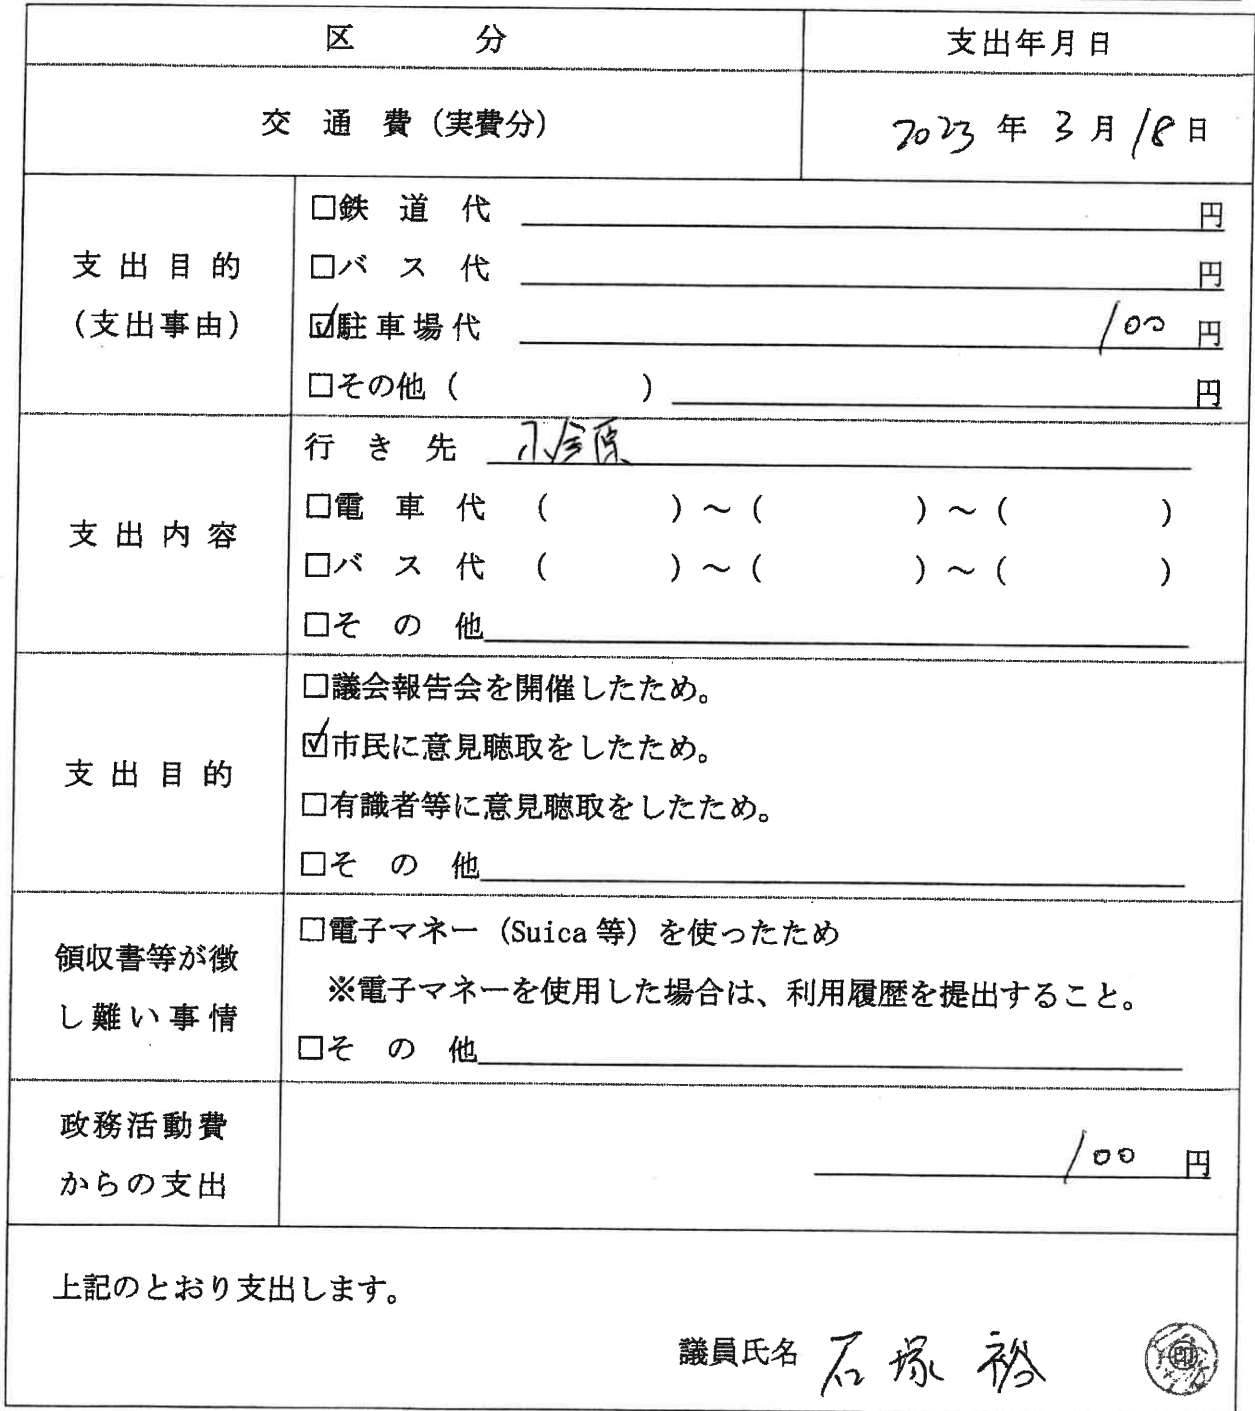 区 分 支出年月日
交 通 費（実費分） 2023 年 3 月 18 日
支出目的
（支出事由）
□鉄 道 代 円
□バ ス 代 円
☑駐車場代 100 円
□その他（ ） 円
支出内容
行 き 先 小金原
□電 車 代 （ ）～（ ）～（ ）
□バ ス 代 （ ）～（ ）～（ ）
□そ の 他
支出目的
□議会報告会を開催したため。
☑市民に意見聴取をしたため。
□有識者等に意見聴取をしたため。
□そ の 他
領収書等が徴
し難い事情
□電子マネー（Suica 等）を使ったため
※電子マネーを使用した場合は、利用履歴を提出すること。
□そ の 他
政務活動費
からの支出
100 円
上記のとおり支出します。
議員氏名 石塚 裕 印